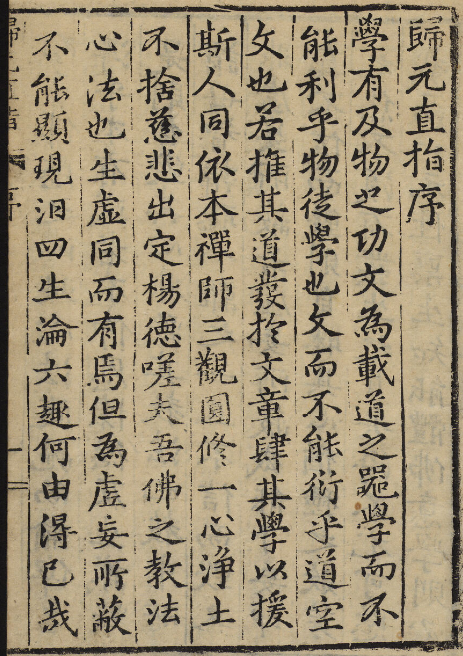 歸元直指序
學有及物之功文為載道之器學而不
能利乎物徒學也文而不能衍乎道空
文也若推其道發於文章肆其學以援
斯人同依本禪師三觀圓修一心淨土
不捨慈悲出定楊德嗟夫吾佛之教法
心法也生虛同而有焉但為虛妄所蔽
不能顯現汨四生淪六趣何由得已哉